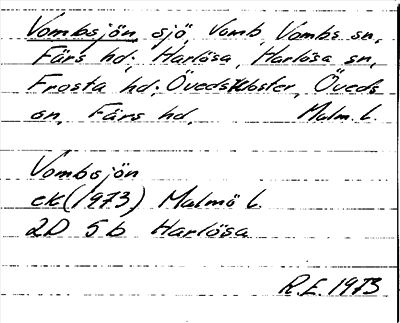 Vombsjön, sjö, Vomb, Vombs sn,
Färs hd; Harlösa, Harlösa sn,
Frosta hd; Övedskloster, Öveds
sn, Färs hd, Malm. L.
Vombsjön
ek (1973) Malmö L.
2D 5b Harlösa
R.E. 1973